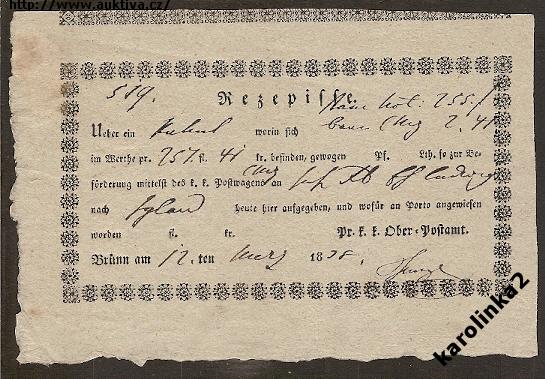 http://www.auktiva.cz/
519.
Rezepisse.
255.f
Ueber ein worin sich 2.41
im Werthe pr. 257. fl. 41 kr. befinden, gewogen Pf. Lth. so zur Be-
förderung mittelst des k. k. Postwagens an Ludwig
nach Iglau heute hier aufgegeben, und wofür an Porto angewiesen
worden fl. kr. Pr. k. k. Ober-Postamt.
Brünn am 12. ten März 1838.
karolinka2